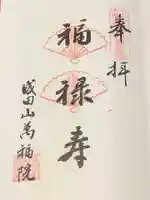 奉拝
福禄寿
成田山萬福院